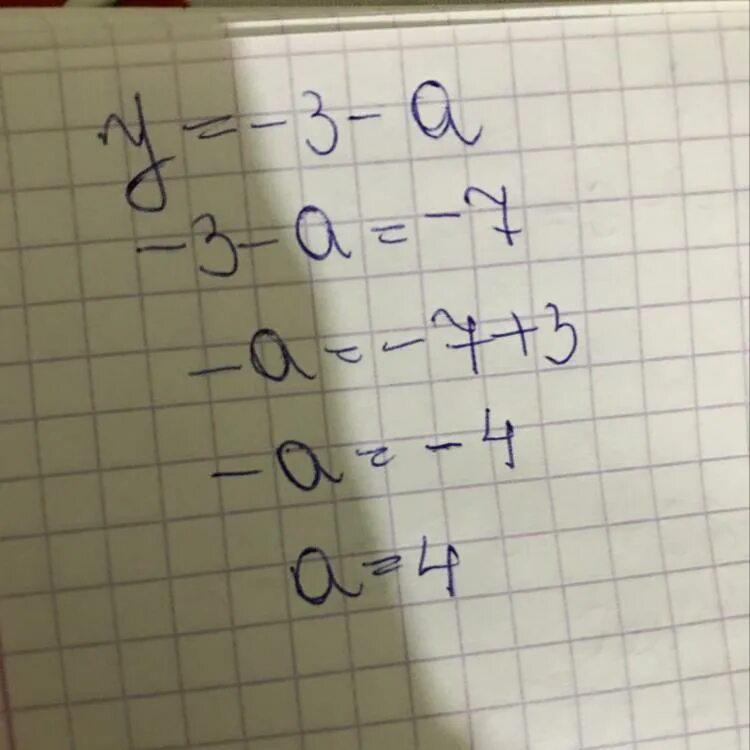 y = -3 - a
-3 - a = -7
-a = -7 + 3
-a = -4
a = 4